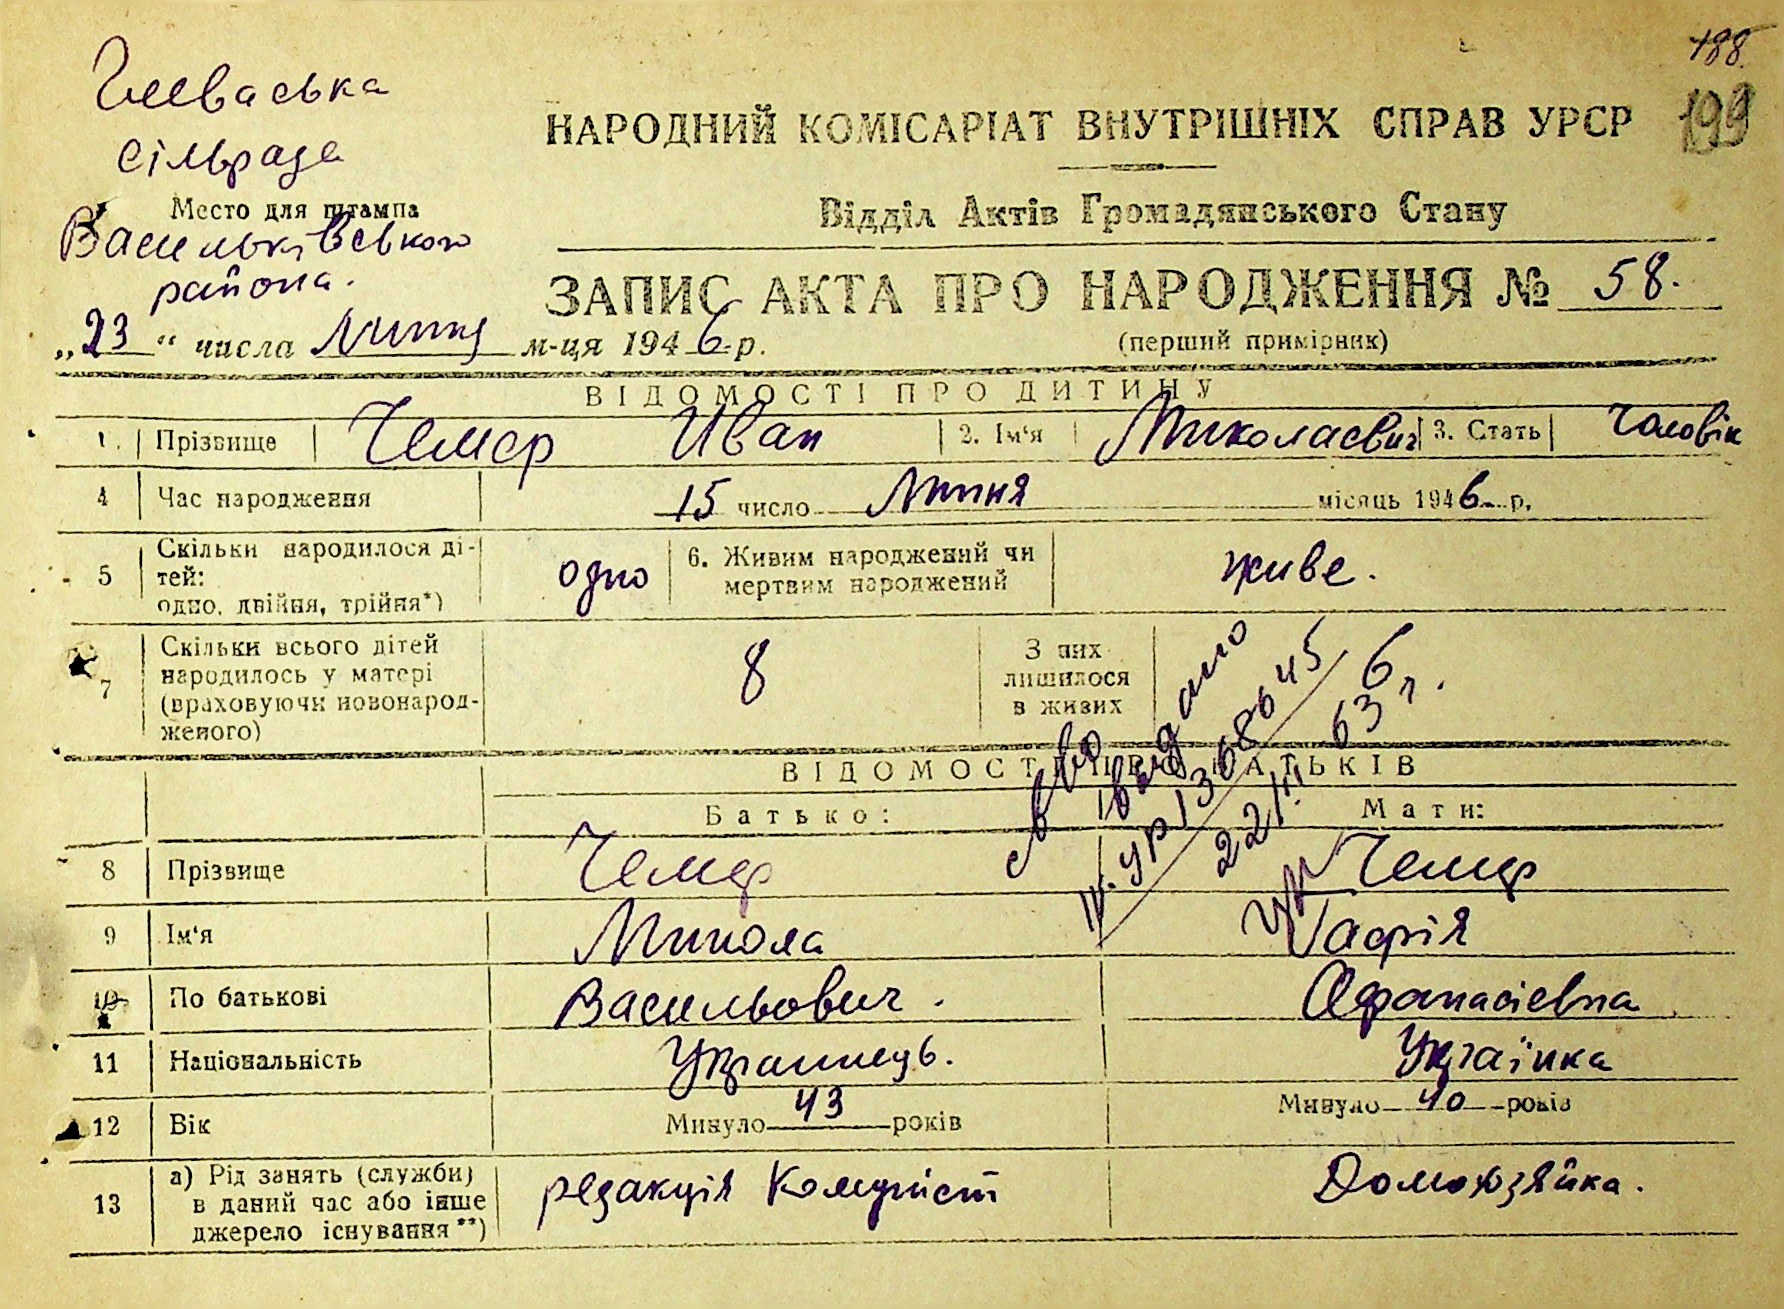 188.
199
Глеваська
сільрада
Место для штампа
Васильківського
района.
НАРОДНИЙ КОМІСАРІАТ ВНУТРІШНІХ СПРАВ УРСР
Відділ Актів Громадянського Стану
ЗАПИС АКТА ПРО НАРОДЖЕННЯ № 58.
(перший примірник)
„23“ числа липня м-ця 1946 р.
ВІДОМОСТІ ПРО ДИТИНУ
1. Прізвище Чемер Иван 2. Ім‘я Миколаевич 3. Стать Чоловік
4 Час народження 15 число Липня місяць 1946 р.
5 Скільки народилося ді-
тей:
одно, двійня, трійня*) одно 6. Живим народжений чи
мертвим народжений живе.
7 Скільки всього дітей
народилось у матері
(враховуючи новонарод-
женого) 8 З них
лишилося
в живих 6
св-во видано
IV-УР 1368645
22/III 63 г.
ВІДОМОСТІ ПРО БАТЬКІВ
Батько: Мати:
8 Прізвище Чемер Чемер
9 Ім‘я Микола Гафія
10 По батькові Васильович. Афанасіевна
11 Національність Українець. Українка
12 Вік Минуло 43 років Минуло 40 років
13 а) Рід занять (служби)
в даний час або інше
джерело існування**) редакція Комуніст Домохозяйка.